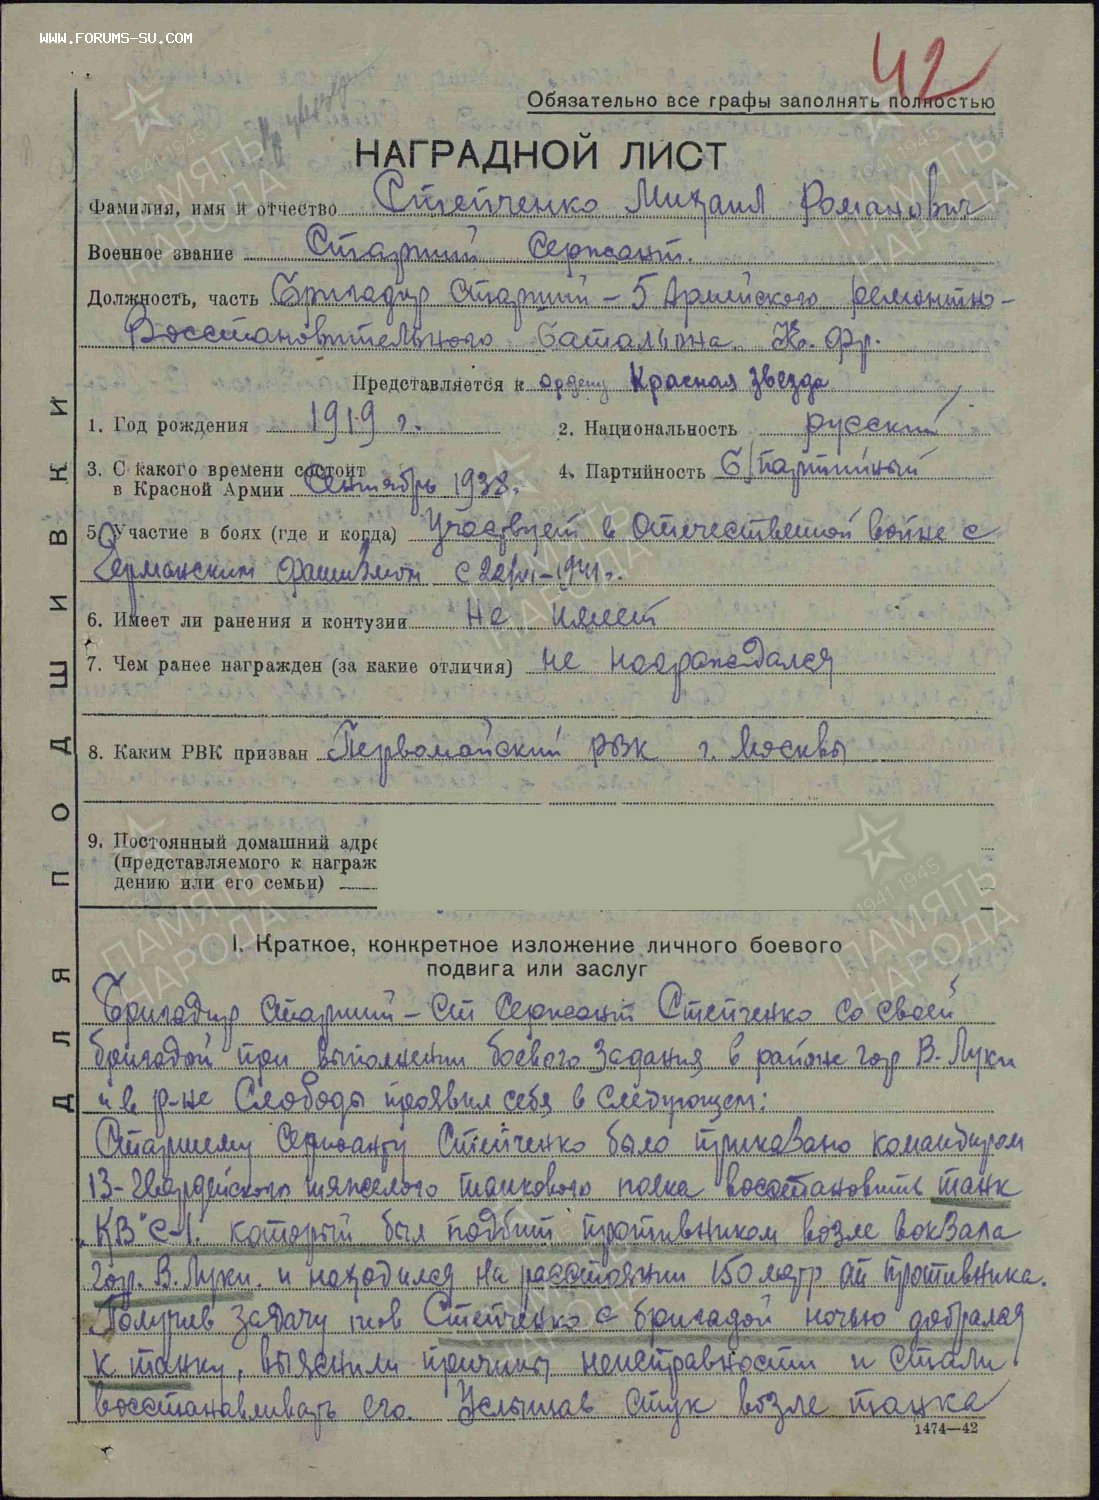 www.forums-su.com
42
Обязательно все графы заполнять полностью
НАГРАДНОЙ ЛИСТ
Фамилия, имя и отчество Стейченко Михаил Романович
Военное звание Старший Сержант.
Должность, часть Бригадир Старший – 5 Армейского ремонтно-
Восстановительного батальона К. Фр.
Представляется к ордену Красная звезда
1. Год рождения 1919 г.
2. Национальность русский
3. С какого времени состоит
в Красной Армии Сентябрь 1938г.
4. Партийность б/партийный
5. Участие в боях (где и когда) Участвует в Отечественной войне с
Германским фашизмом с 22/VI-1941г.
6. Имеет ли ранения и контузии Не имеет
7. Чем ранее награжден (за какие отличия) не награждался
8. Каким РВК призван Первомайский РВК г. Москвы
9. Постоянный домашний адре
(представляемого к награж
дению или его семьи)
ДЛЯ ПОДШИВКИ
I. Краткое, конкретное изложение личного боевого
подвига или заслуг
Бригадир старший – ст Сержант Стейченко со своей
бригадой при выполнении боевого задания в районе гор В. Луки
и в р-не Слободы проявил себя в следующем:
Старшему Сержанту Стейченко было приказано командиром
13-Гвардейского тяжелого танкового полка восстановить танк
КВ"С-1. который был подбит противником возле вокзала
гор. В. Луки. и находился на расстоянии 150 метр от противника.
Получив задачу тов Стейченко с бригадой ночью добрался
к танку, выяснили причины неисправности и стали
восстанавливать его. Услышав стук возле танка
1474—42
ПАМЯТЬ НАРОДА
1941-1945